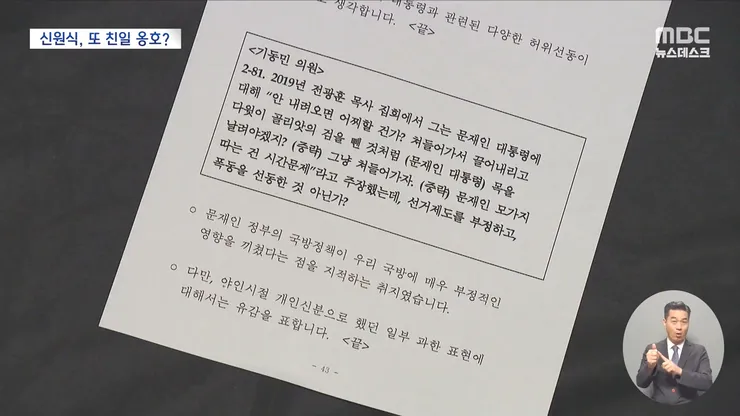 신원식, 또 친일 옹호?
MBC
뉴스데스크
대통령과 관련된 다양한 허위선동이
생각합니다. <끝>
<기동민 의원>
2-81. 2019년 전광훈 목사 집회에서 그는 문재인 대통령에
대해 “안 내려오면 어찌할 건가? 쳐들어가서 끌어내리고
다윗이 골리앗의 검을 뺀 것처럼 (문재인 대통령) 목을
날려야겠지? (중략) 그냥 쳐들어가자. (중략) 문재인 모가지
따는 건 시간문제”라고 주장했는데, 선거제도를 부정하고,
폭동을 선동한 것 아닌가?
○ 문재인 정부의 국방정책이 우리 국방에 매우 부정적인
영향을 끼쳤다는 점을 지적하는 취지였습니다.
○ 다만, 야인시절 개인신분으로 했던 일부 과한 표현에
대해서는 유감을 표합니다. <끝>
- 43 -